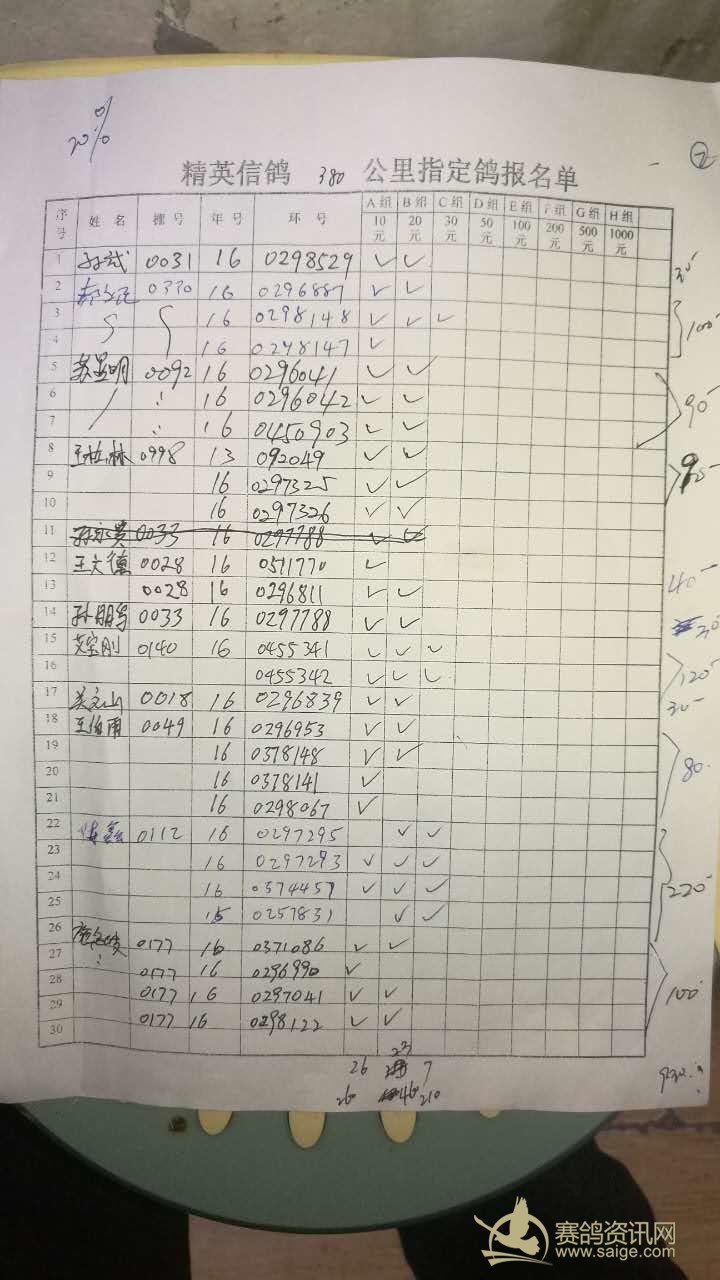 20%
②
精英信鸽 380 公里指定鸽报名单
序号 姓名 棚号 年号 环号 A组 10元 B组 20元 C组 30元 D组 50元 E组 100元 F组 200元 G组 500元 H组 1000元
1 0031 16 0298529 ✓ ✓
2 0330 16 0296887 ✓ ✓
3 16 0298148 ✓ ✓ ✓
4 16 0298147 ✓
100
5 苏显明 0092 16 0296041 ✓ ✓
6 16 0296042 ✓ ✓
7 16 0450903 ✓ ✓
90
8 王桂林 0998 13 092049 ✓ ✓
9 16 0297325 ✓ ✓
10 16 0297326 ✓ ✓
11 孙永贵 0033 16 0297788 ✓ ✓
12 王文德 0028 16 0511770 ✓
13 0028 16 0296811 ✓ ✓
40
14 0033 16 0297788 ✓ ✓
30
15 艾宝刚 0140 16 0455341 ✓ ✓ ✓
16 0455342 ✓ ✓ ✓
120
17 关宝山 0018 16 0296839 ✓ ✓
30
18 王伯雨 0049 16 0296953 ✓ ✓
19 16 0378148 ✓ ✓
20 16 0378141 ✓
21 16 0298067 ✓
80
22 0112 16 0297295 ✓ ✓
23 16 0297293 ✓ ✓ ✓
24 16 0374457 ✓ ✓ ✓
25 15 0257831 ✓ ✓
220
26
27 0177 16 0371086 ✓ ✓
28 0177 16 0296990 ✓
29 0177 16 0297041 ✓ ✓
30 0177 16 0298122 ✓ ✓
100
26 23 7
260 460 210
930
赛鸽资讯网
www.saige.com